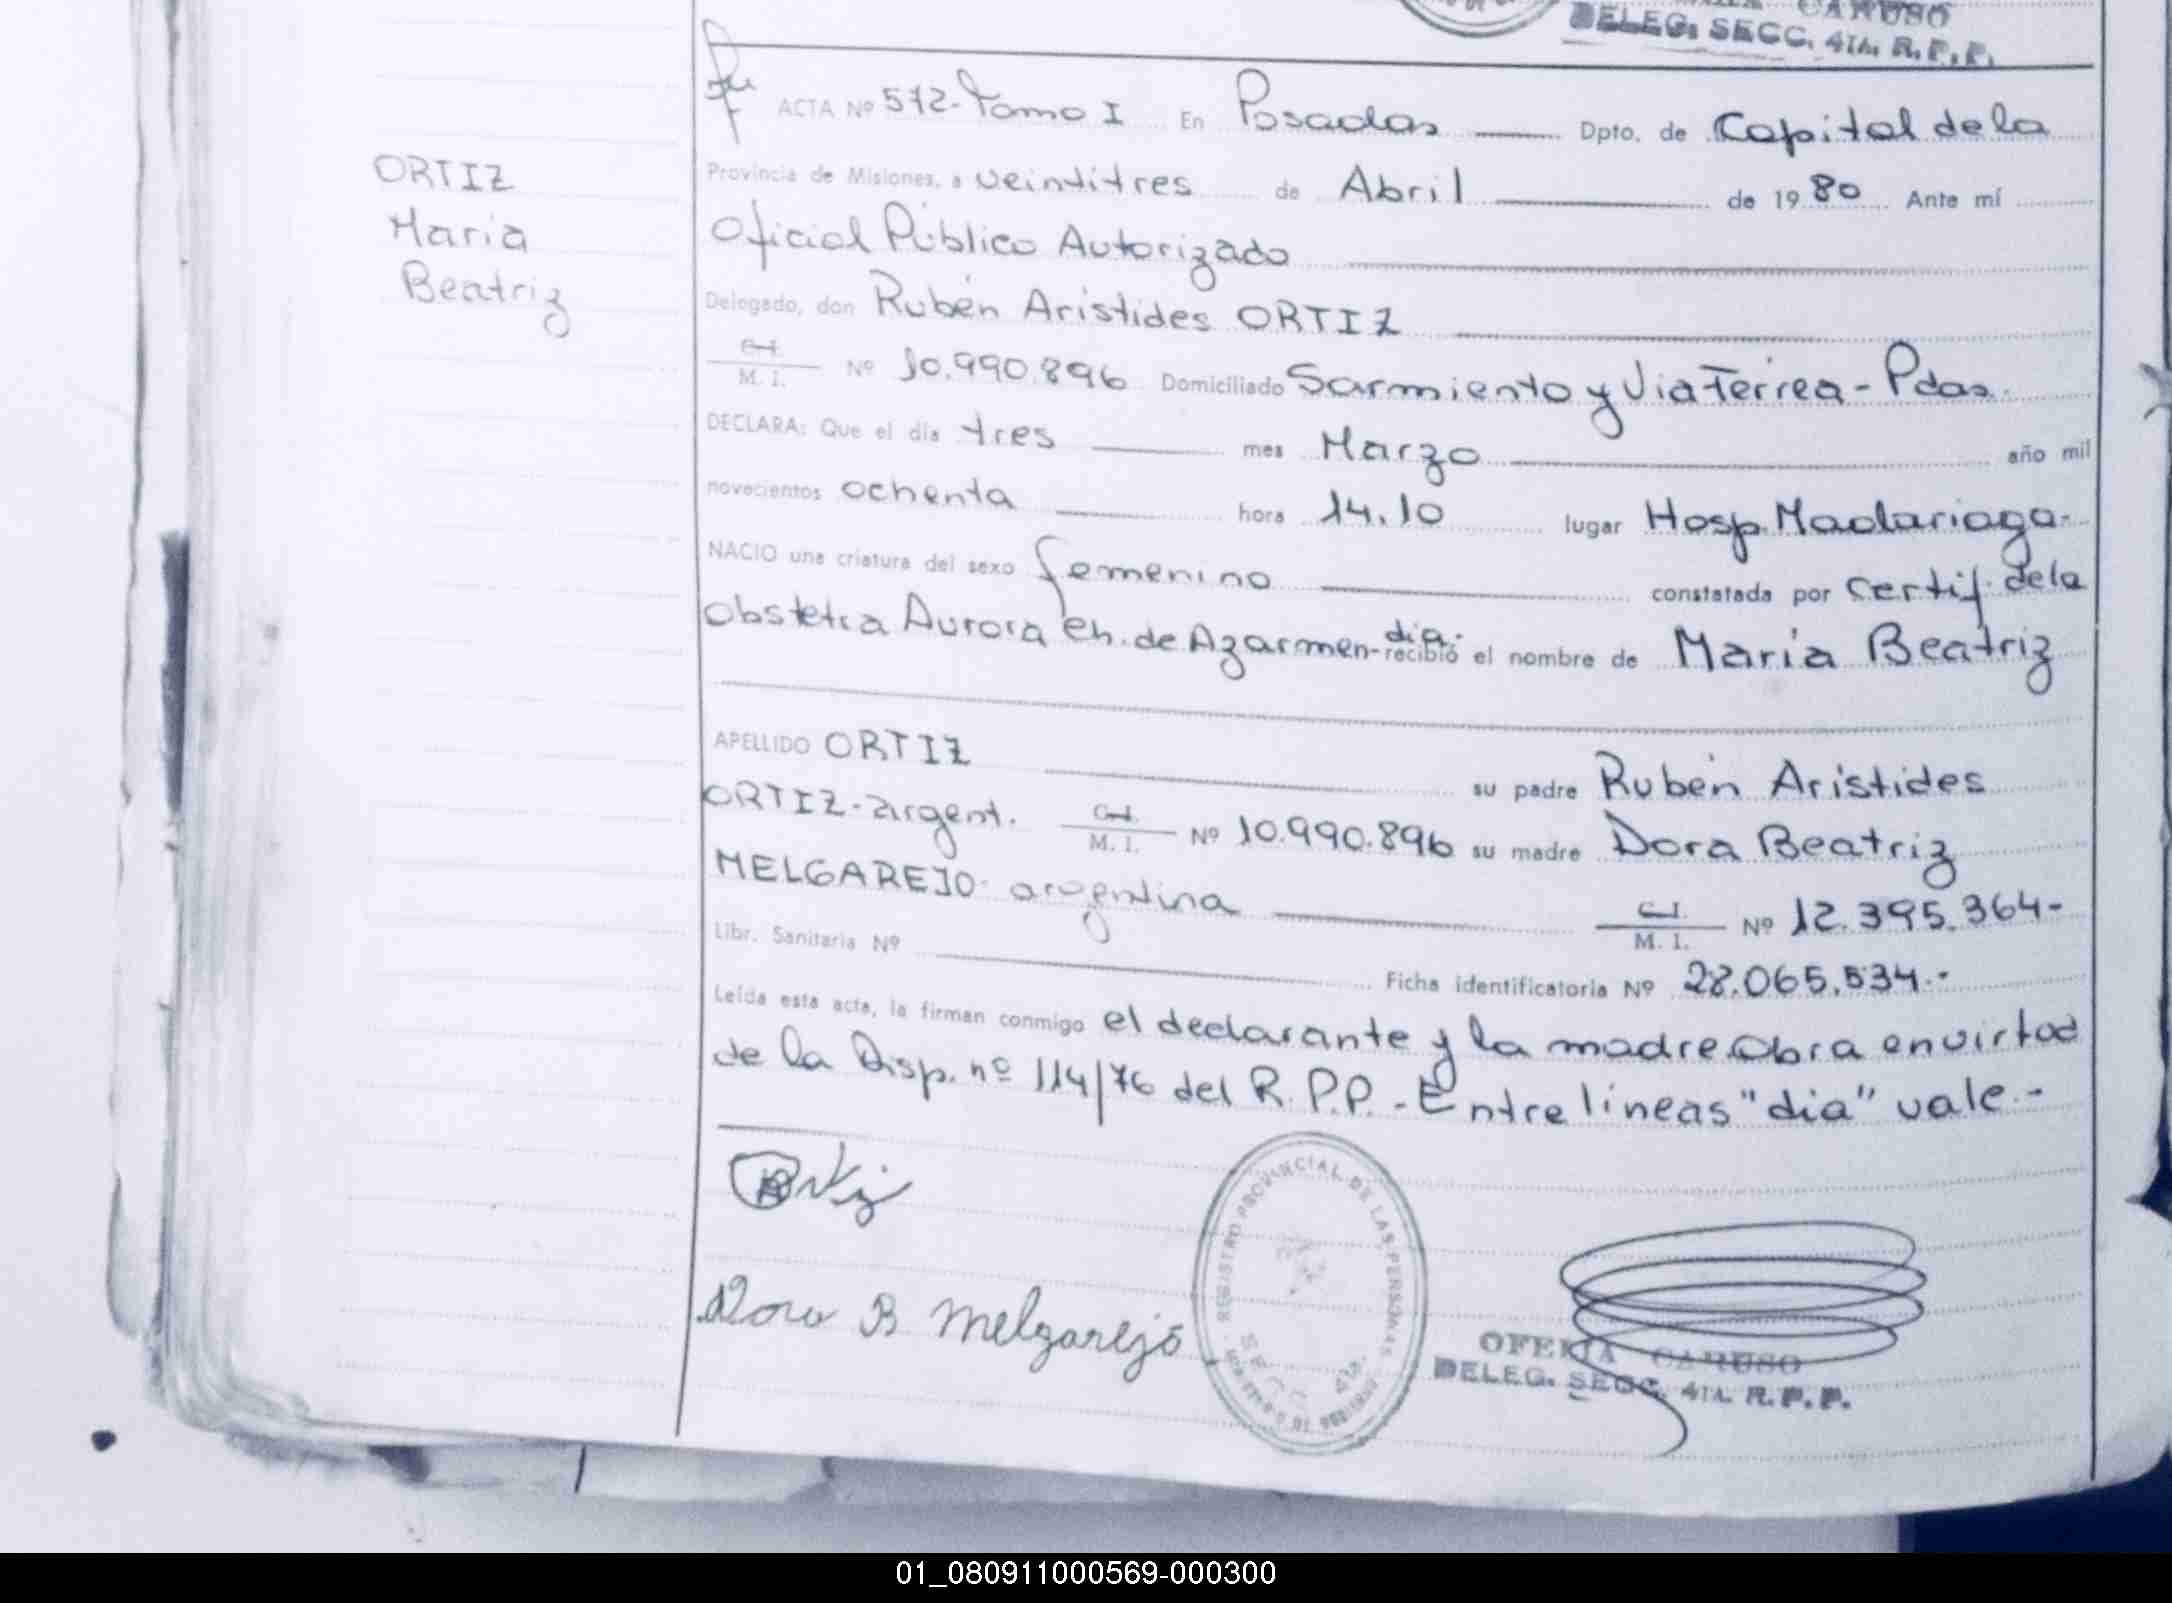 CARUSO
DELEG. SECC. 4TA. R.P.P.
ACTA Nº 572-Tomo I En Posadas Dpto. de Capital de la
ORTIZ
Maria
Beatriz
Provincia de Misiones, a veintitres de Abril de 1980 Ante mí
Oficial Público Autorizado
Delegado, don Rubén Aristides ORTIZ
C.I.
M. I. Nº 10.990.896 Domiciliado Sarmiento y Via Ferrea - Pdas.
DECLARA: Que el día tres mes Marzo año mil
novecientos ochenta hora 14.10 lugar Hosp. Madariaga.
NACIO una criatura del sexo femenino constatada por certif. de la
Obstetra Aurora Ch. de Azarmen-dia- recibió el nombre de Maria Beatriz
APELLIDO ORTIZ su padre Rubén Aristides
ORTIZ-argent. C.I. M. I. Nº 10.990.896 su madre Dora Beatriz
MELGAREJO- argentina C.I. M. I. Nº 12.395.364-
Libr. Sanitaria Nº Ficha identificatoria Nº 28.065.534.-
Leída esta acta, la firman conmigo el declarante y la madre. Obra en virtud
de la Disp. nº 114/76 del R.P.P.-Entre líneas "dia" vale.-
Ortiz
Dora B Melgarejo
REGISTRO PROVINCIAL DE LAS PERSONAS
SECC. 4ta.
OFELIA CARUSO
DELEG. SECC. 4TA. R.P.P.
01_080911000569-000300